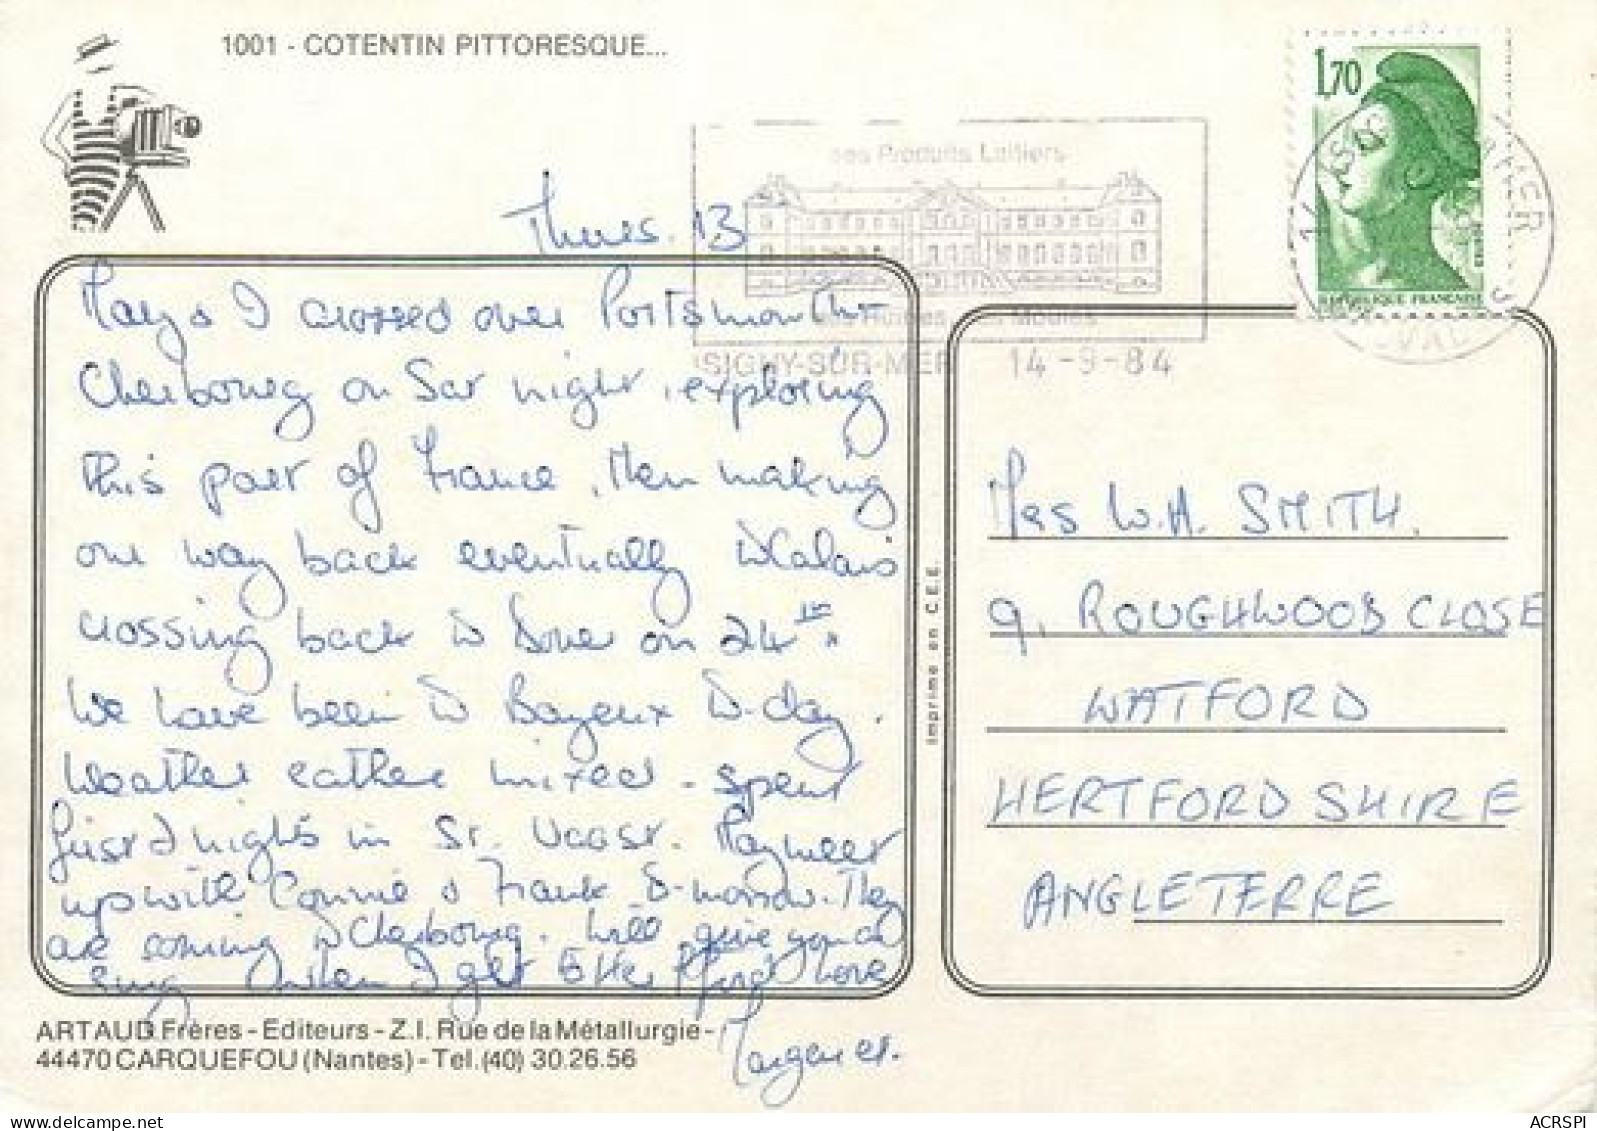 1001 - COTENTIN PITTORESQUE...
1,70
RÉPUBLIQUE FRANÇAISE
Produits Laitiers
ISIGNY-SUR-MER 14-9-84
Thurs. 13
Mary & I crossed over Portsmouth -
Cherbourg on Sat night, exploring
this part of France, then making
our way back eventually to Calais
crossing back to Dover on 24th.
We have been to Bayeux to-day.
Weather rather mixed - spent
first 2 nights in St. Vaast. May meet
up with Connie & Frank to-morrow. They
are coming to Cherbourg. Will give you a
ring when I get
Love
Margaret.
Imprimé en C.E.E.
Mrs W.H. SMITH.
9, ROUGHWOOD CLOSE
WATFORD
HERTFORDSHIRE
ANGLETERRE
ARTAUD Frères - Editeurs - Z.I. Rue de la Métallurgie -
44470 CARQUEFOU (Nantes) - Tel. (40) 30.26.56
ACRSPI